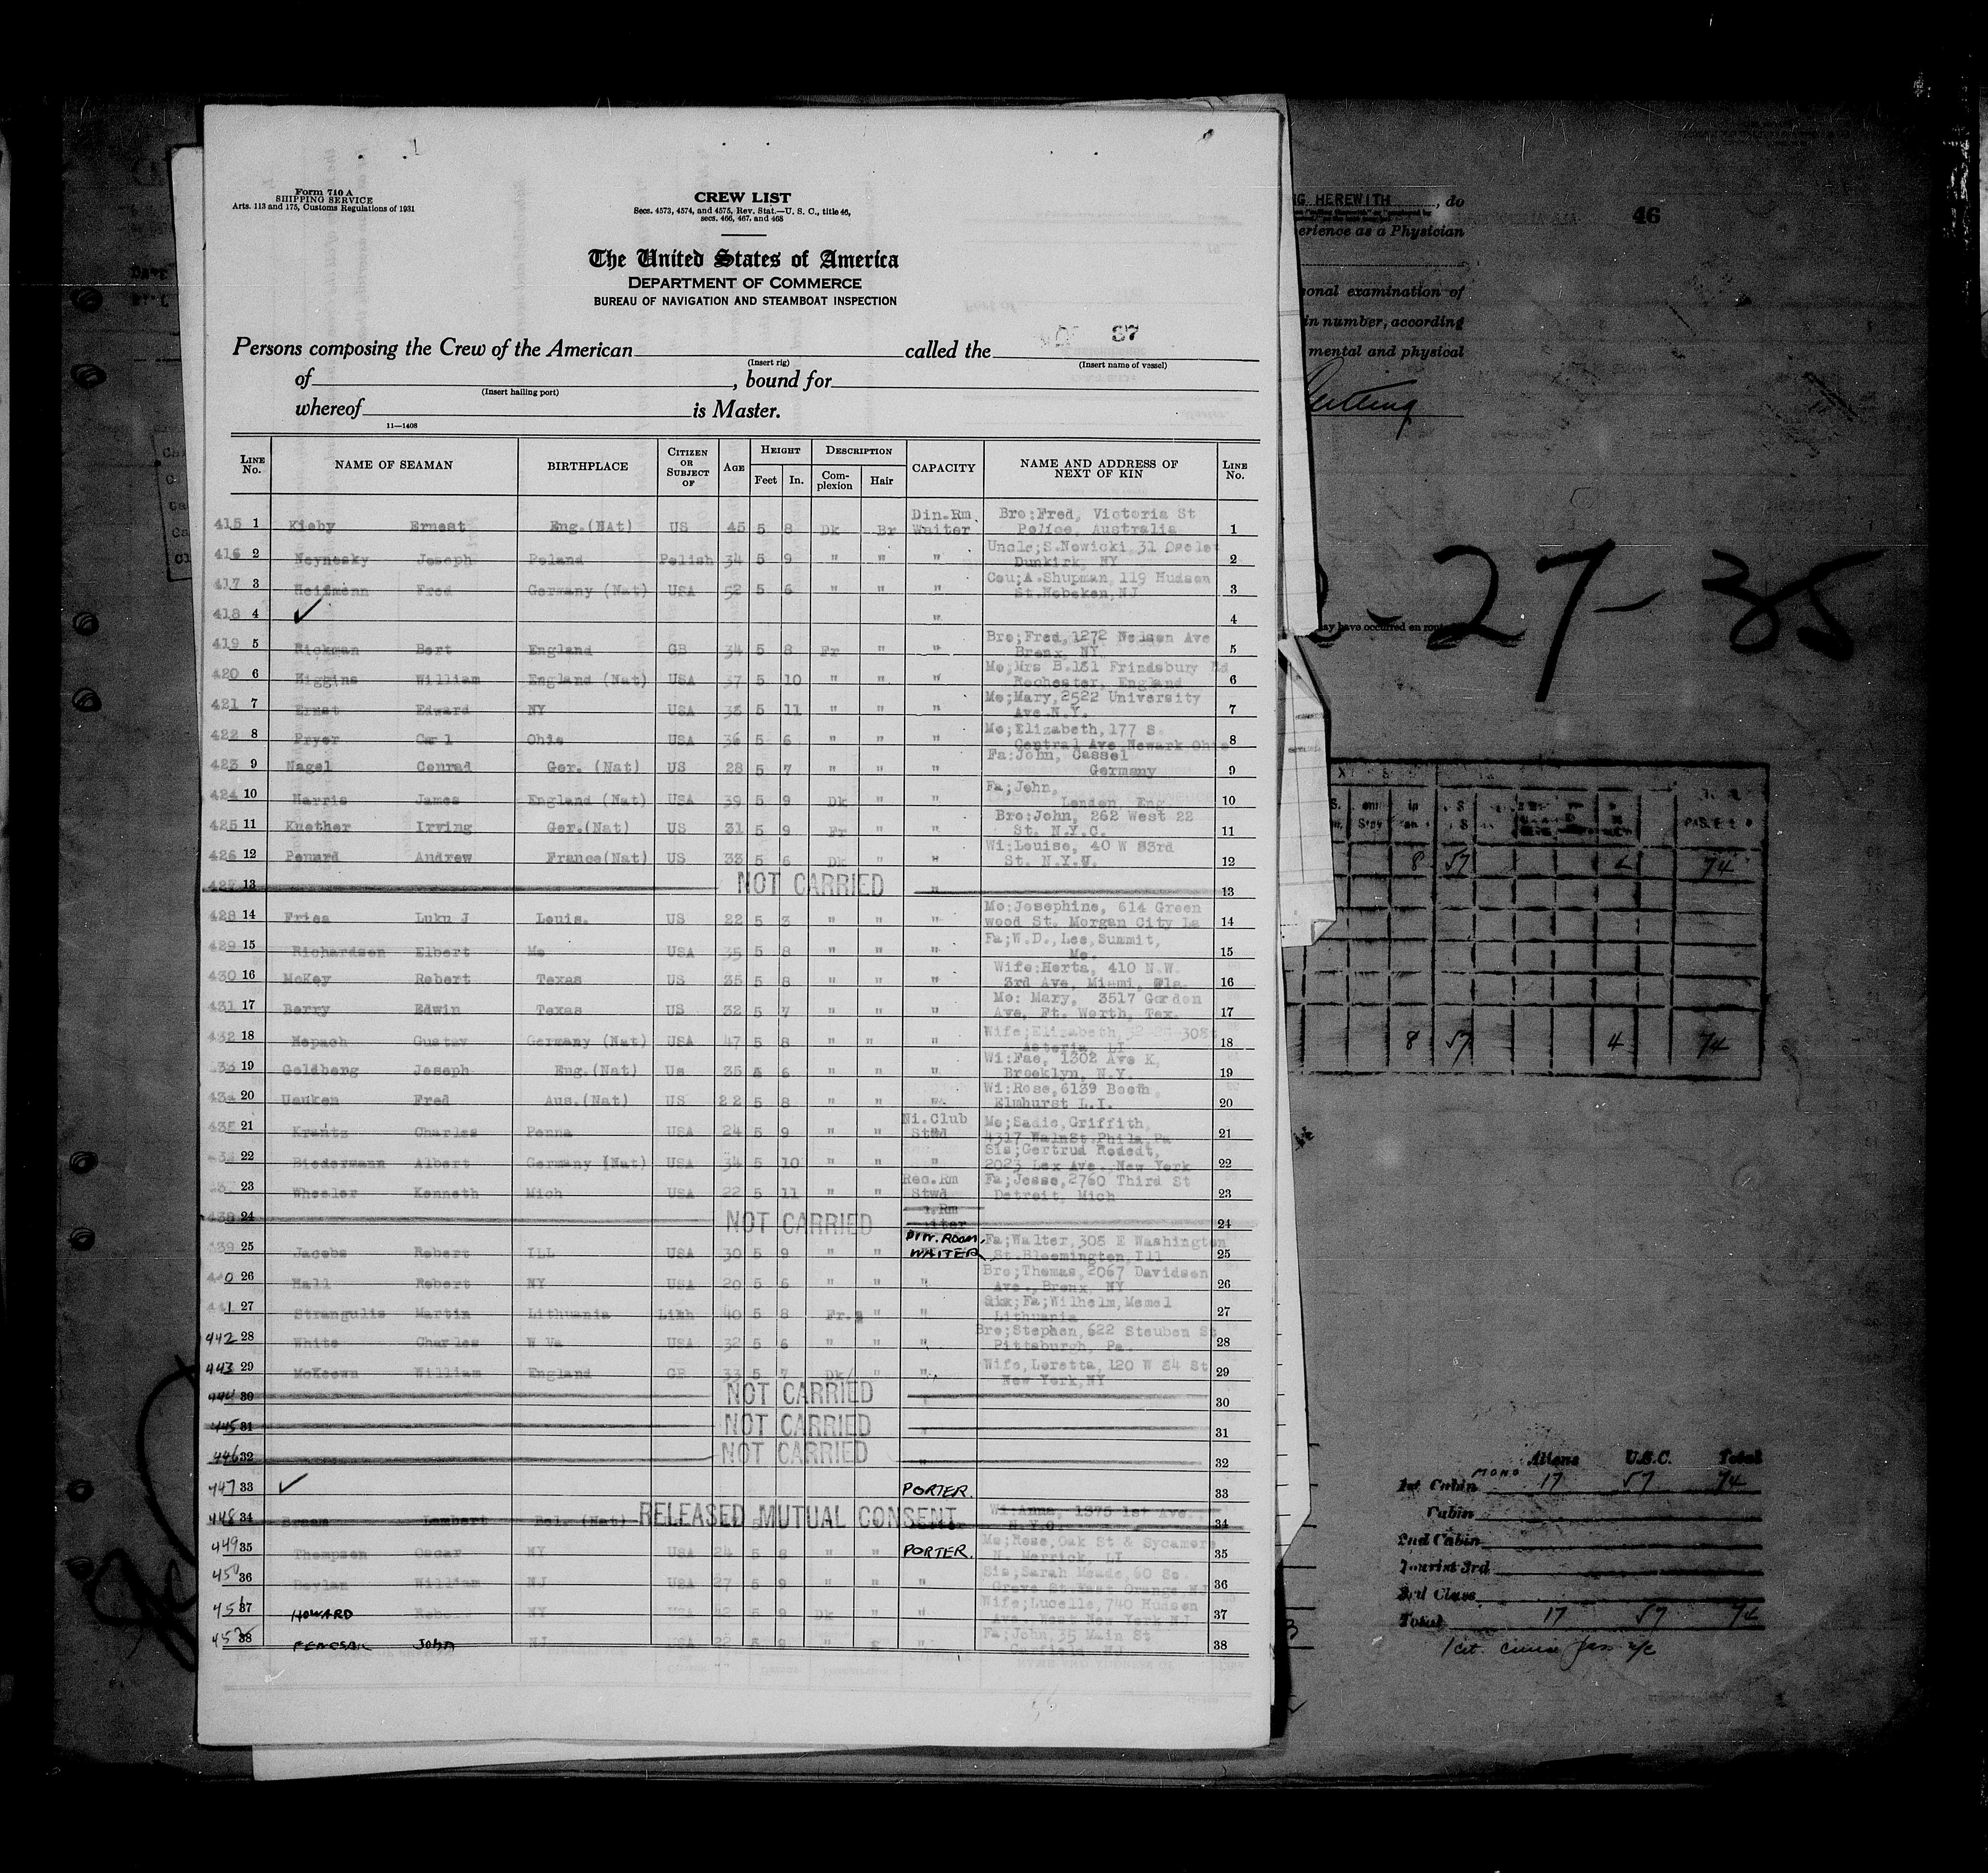 Form 710 A
SHIPPING SERVICE
Arts. 113 and 175, Customs Regulations of 1931
CREW LIST
Secs. 4573, 4574, and 4575, Rev. Stat.—U. S. C., title 46,
secs. 466, 467, and 468
The United States of America
DEPARTMENT OF COMMERCE
BUREAU OF NAVIGATION AND STEAMBOAT INSPECTION
37
Persons composing the Crew of the American called the
(Insert rig) (Insert name of vessel)
of , bound for
(Insert hailing port)
whereof is Master.
11—1408
LINE No. NAME OF SEAMAN BIRTHPLACE CITIZEN OR SUBJECT OF AGE HEIGHT Feet In. DESCRIPTION Complexion Hair CAPACITY NAME AND ADDRESS OF NEXT OF KIN LINE No.
415 1 Kieby Ernest Eng.(NAt) US 45 5 8 Dk Br Din.Rm Waiter Bro:Fred, Victoria St Police, Australia 1
416 2 Noynosky Joseph Poland Polish 34 5 9 " " " Uncle;S.Nowicki, 31 Dunkirk, NY 2
417 3 Fred Germany (Nat) USA 52 5 6 " " " Cou;A.Shupman, 119 Hudson St.Hoboken,NJ 3
418 4 ✓ " 4
419 5 Rickman Bert England GB 34 5 8 Fr " " Bro;Fred,1272 Nelson Ave Bronx, NY 5
420 6 Higgins William England (Nat) USA 37 5 10 " " " Mo;Mrs B.181 Frindsbury Rd Rochester, England 6
421 7 Ernst Edward NY USA 38 5 11 " " " Mo;Mary,2522 University Ave.N.Y. 7
422 8 Fryer Carl Ohio USA 36 5 6 " " " Mo;Elizabeth,177 S. Central Ave Newark Ohio 8
423 9 Nagel Conrad Ger. (Nat) US 28 5 7 " " " Fa:John, Cassel Germany 9
424 10 Harris James England (Nat) USA 39 5 9 Dk " " Fa;John, London Eng. 10
425 11 Knether Irving Ger.(Nat) US 31 5 9 Fr " " Bro:John, 262 West 22 St. N.Y.C. 11
426 12 Penard Andrew France(Nat) US 33 5 6 Dk " " Wi:Louise, 40 W 83rd St. N.Y.C. 12
427 13 NOT CARRIED " 13
428 14 Fries Luku J Louis. US 22 5 3 " " " Mo:Josephine, 614 Green wood St. Morgan City La 14
429 15 Richardson Elbert Mo USA 35 5 8 " " " Fa;W.D., Lee,Summit, Mo. 15
430 16 McKey Robert Texas US 35 5 8 " " " Wife:Herta, 410 N.W. 3rd Ave, Miami, Fla. 16
431 17 Berry Edwin Texas US 32 5 7 " " " Mo: Mary, 3517 Gordon Ave, Ft. Worth, Tex. 17
432 18 Hopach Gustav Germany (Nat) USA 47 5 8 " " " Wife;Elizabeth Astoria, LI 18
433 19 Goldberg Joseph Eng.(Nat) Us 35 5 6 " " " Wi:Fae, 1302 Ave K, Brooklyn, N.Y. 19
434 20 Uauken Fred Aus.(Nat) US 22 5 8 " " " Wi:Rose,6139 Booth, Elmhurst L.I. 20
435 21 Krantz Charles Penna USA 24 5 9 " " Ni.Club Stwd Mo;Sadie,Griffith, 4317 WalnSt.Phila,Pa 21
436 22 Biedermann Albert Germany (Nat) USA 34 5 10 " " " Sis;Gertrud Rededt, 2023 Lex Ave. New York 22
437 23 Wheeler Kenneth Mich USA 22 5 11 " " Rec.Rm Stwd Fa;Jesse,2760 Third St Detroit, Mich 23
438 24 NOT CARRIED 24
439 25 Jacobs Robert ILL USA 30 5 9 " " DIN. ROOM. WAITER Fa;Walter,305 E Washington St.Bloomington,Ill 25
440 26 Hall Robert NY USA 20 5 6 " " " Bro;Thomas,2067 Davidson Ave., Bronx, NY 26
441 27 Strangulis Martin Lithuania Lith 40 5 8 Fr. " " Fa;Wilhelm,Memel Lithuania 27
442 28 White Charles W Va USA 32 5 6 " " " Bro;Stephen,622 Steuben St Pittsburgh, Pa. 28
443 29 McKeown William England GB 33 5 7 Dk " " Wife,Loretta, 120 W 84 St New York,NY 29
444 30 NOT CARRIED 30
445 31 NOT CARRIED " 31
446 32 NOT CARRIED " 32
447 33 ✓ PORTER. 33
448 34 Lambert Bel. (Nat) RELEASED MUTUAL CONSENT Wi:Anna, 1375 1st Ave. N.Y.C. 34
449 35 Thompson Oscar NY USA 24 5 8 " " PORTER. Mo;Rose,Oak St & Sycamore N. Merrick, LI 35
450 36 Doylan William NJ USA 27 5 9 " " " Sis;Sarah Meade,60 So. Grove St.East Orange NJ 36
451 37 HOWARD Robert NY USA 42 5 9 Dk " " Wife;Lucelle,740 Hudson Ave. West New York NJ 37
452 38 John NJ USA 22 5 8 " " Fa;John,35 Main St Garfield, NJ 38
G HEREWITH , do
46
erience as a Physician
onal examination of
in number, according
mental and physical
27-35
may have occurred en route
8 57 74
8 57 4 74
Aliens U.S.C. Total
1st Cabin 17 57 74
Cabin
2nd Cabin
Tourist 3rd
3rd Class
Total 17 57 74